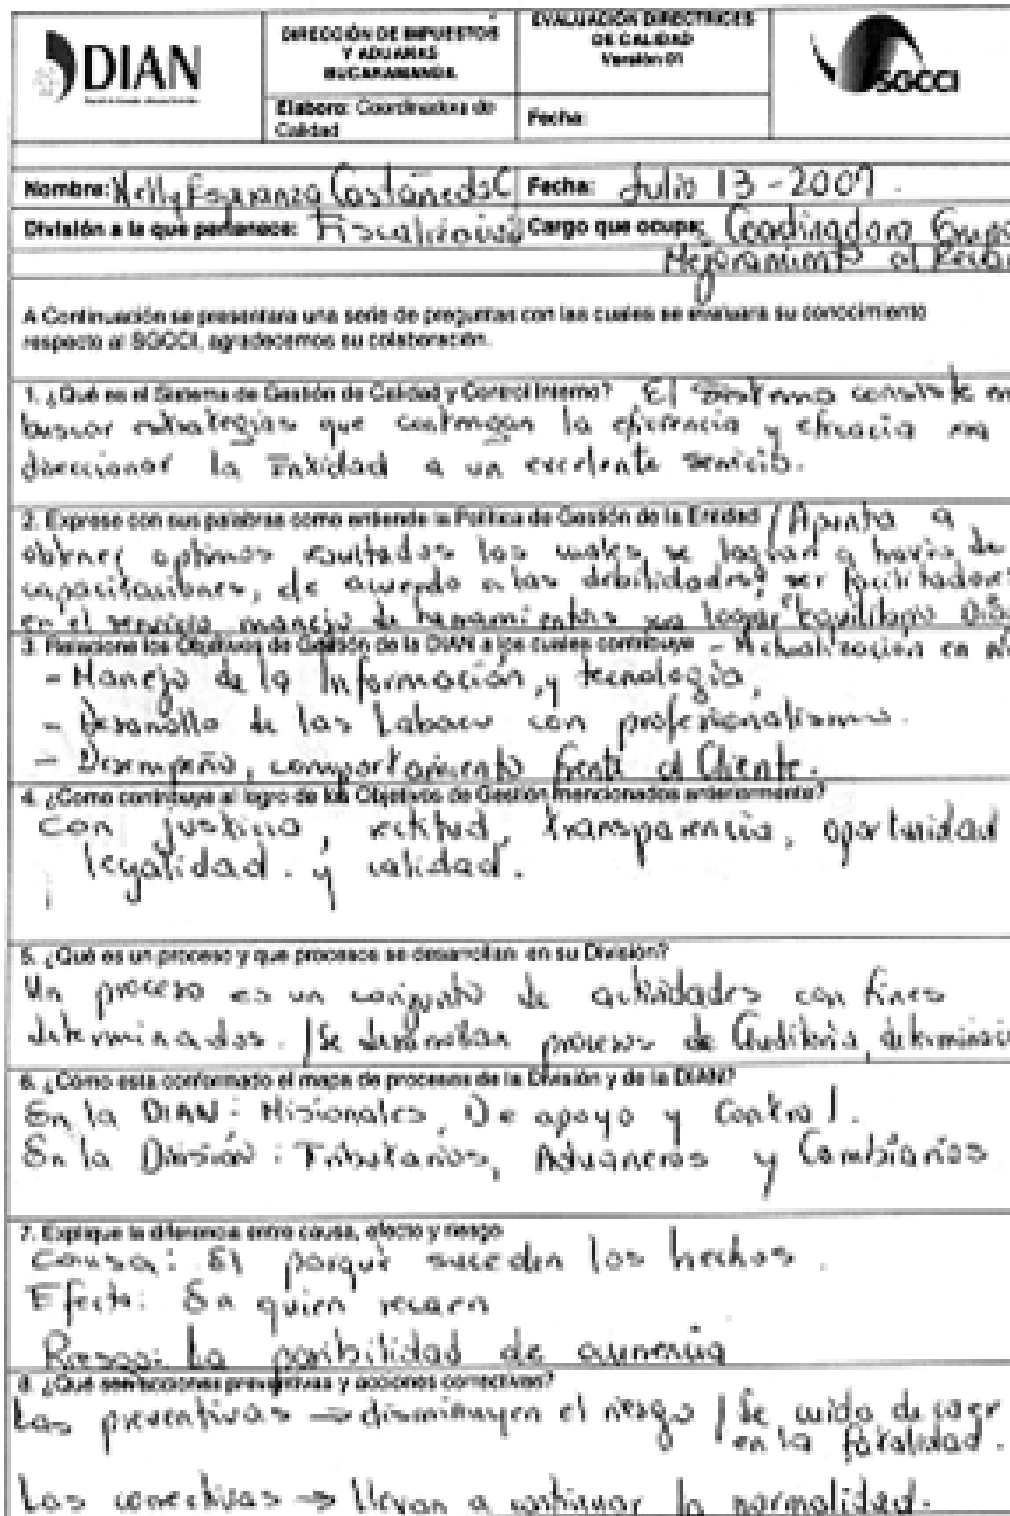 DIAN
DIRECCIÓN DE IMPUESTOS
Y ADUANAS
BUCARAMANGA
EVALUACIÓN DIRECTRICES
DE CALIDAD
Versión 01
SGCCI
Elaboro: Coordinadora de
Calidad
Fecha:
Nombre: Nelly Esperanza Castañeda C Fecha: Julio 13 - 2007.
División a la que pertenece: Fiscalización Cargo que ocupa: Coordinadora Grupo
Mejoramiento al
A Continuación se presentara una serie de preguntas con las cuales se evaluara su conocimiento
respecto al SGCCI, agradecemos su colaboración.
1. ¿Qué es el Sistema de Gestión de Calidad y Control Interno? El Sistema consiste en
buscar estrategias que contengan la eficiencia y eficacia
direccionar la Entidad a un excelente servicio.
2. Exprese con sus palabras como entiende la Política de Gestión de la Entidad / Apunta a
obtener optimos resultados los cuales se logran a través de
capacitaciones, de acuerdo a las debilidades, ser facilitadores
en el servicio manejo de herramientas lograr equilibrio
3. Relacione los Objetivos de Gestión de la DIAN a los cuales contribuye - Actualización en
- Manejo de la Información, y tecnología,
- Desarrollo de las Labores con profesionalismo.
- Desempeño, comportamiento frente al Cliente.
4. ¿Como contribuye al logro de los Objetivos de Gestión mencionados anteriormente?
Con justicia, rectitud, transparencia, oportunidad
legalidad. y calidad.
5. ¿Qué es un proceso y que procesos se desarrollan en su División?
Un proceso es un conjunto de actividades con fines
determinados. / Se desarrollan procesos de Auditoria,
6. ¿Cómo esta conformado el mapa de procesos de la División y de la DIAN?
En la DIAN: Misionales, De apoyo y Control.
En la División: Tributarios, Aduaneros y Cambiarios
7. Explique la diferencia entre causa, efecto y riesgo
Causa: El porqué suceden los hechos.
Efecto: En quien recaen
Riesgo: La posibilidad de
8. ¿Qué son acciones preventivas y acciones correctivas?
Las preventivas ⇒ disminuyen el riesgo / Se cuida de caer
en la fatalidad.
Las correctivas ⇒ Llevan a continuar la normalidad.